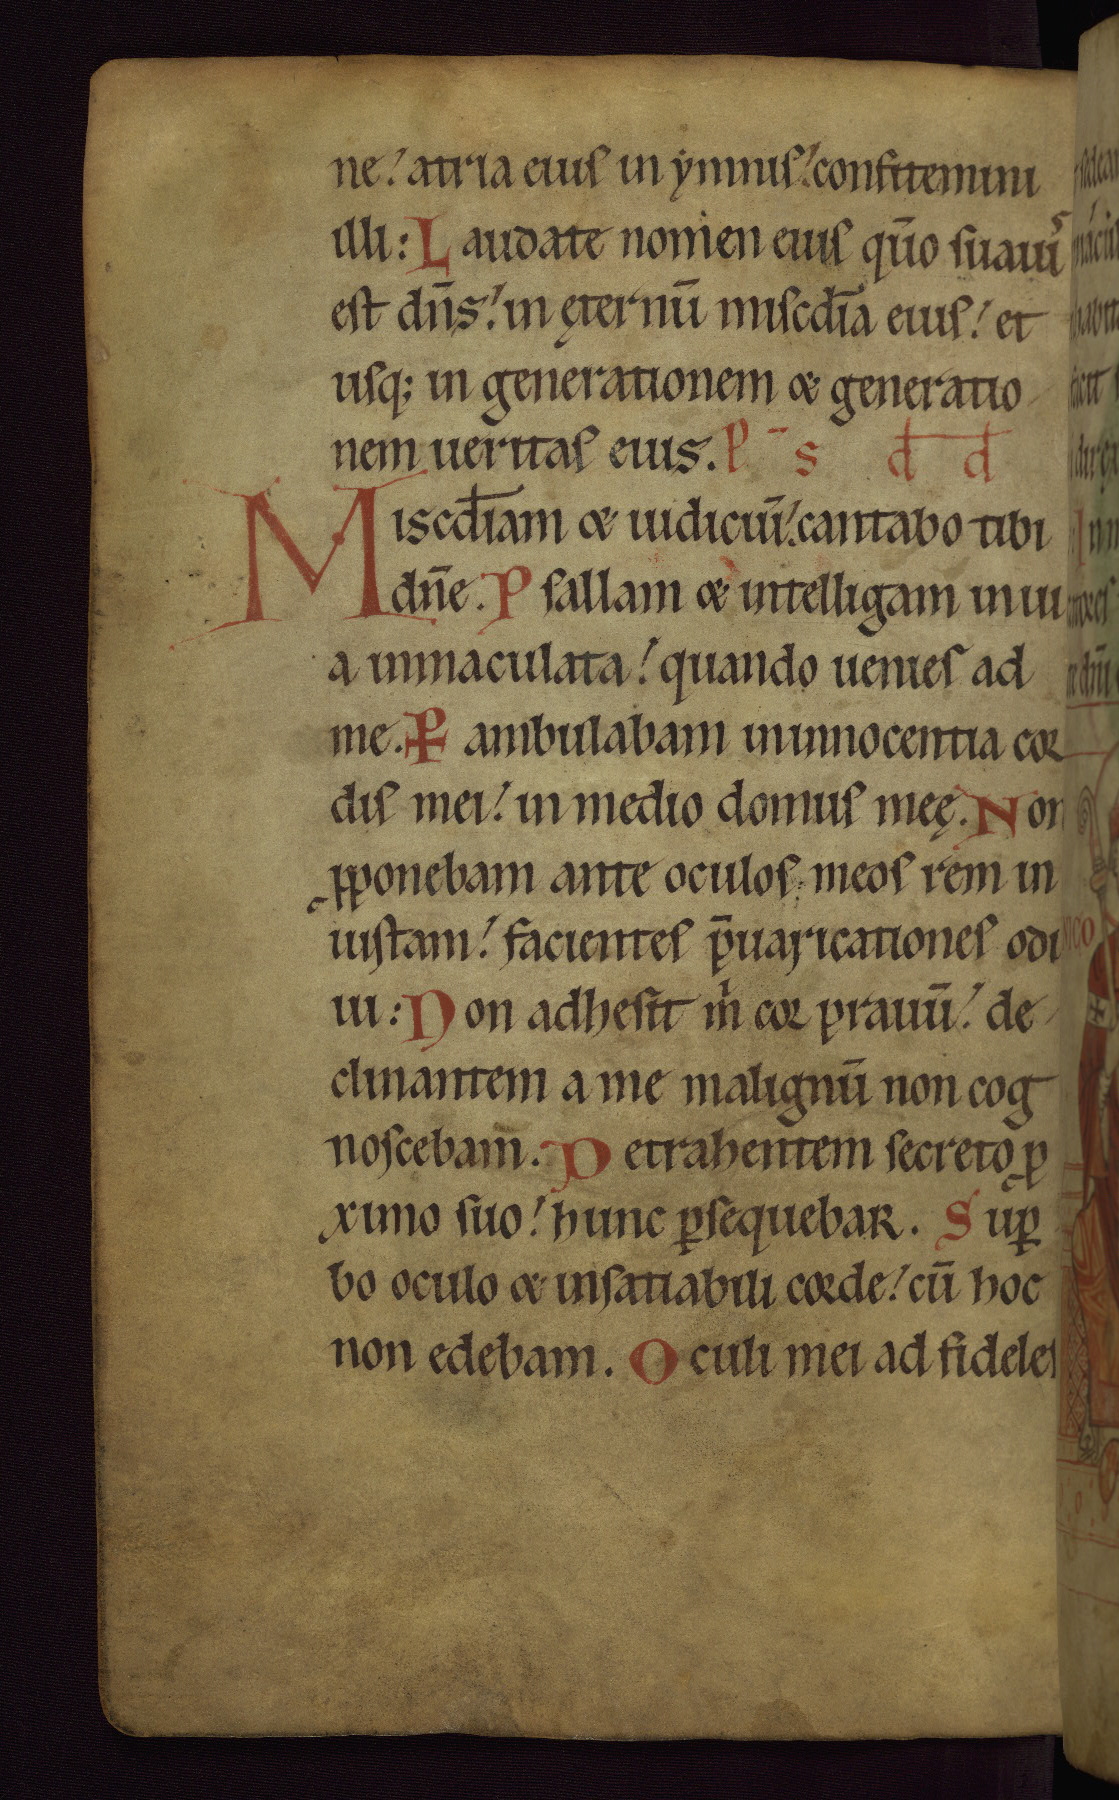 ne! atria eius in ẏmnis! confitemini
illi: Laudate nomen eius qūo suauis
est dn̄s! in ęternū misc̄dia eius! et
usq; in generationem & generatio
nem ueritas eius. P s d d
Misc̄diam & iudiciū! cantabo tibi
dn̄e. Psallam & intelligam in ui
a inmaculata! quando uenies ad
me. P ambulabam in innocentia cor
dis mei! in medio domus meę. Non
ꝓponebam ante oculos meos rem in
iustam! facientes p̄uaricationes odi
ui: Non adhesit ṁ cor prauū! de
clinantem a me malignū non cog
noscebam. Detrahentem secreto ꝓ
ximo suo! hunc ꝑsequebar. Suꝑ
bo oculo & insatiabili corde! cū hoc
non edebam. Oculi mei ad fideles